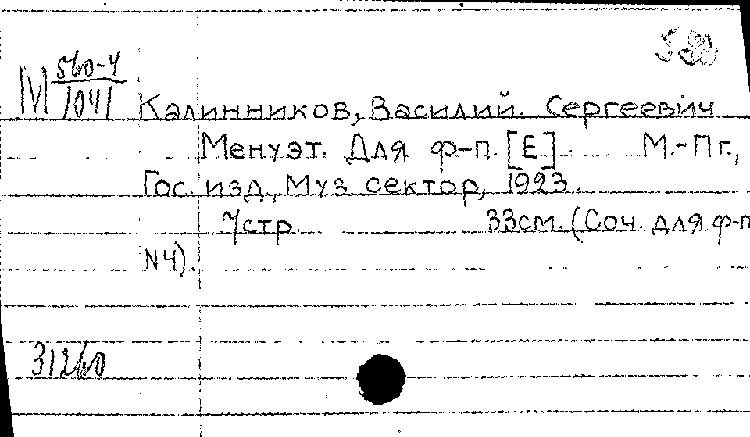 М 560-4
1041
Калинников, Василий. Сергеевич
Менуэт. Для ф-п. [Е] М.-Пг.,
Гос. изд., Муз сектор, 1923.
7стр 33см. (Соч. для ф-п
N4).
31260